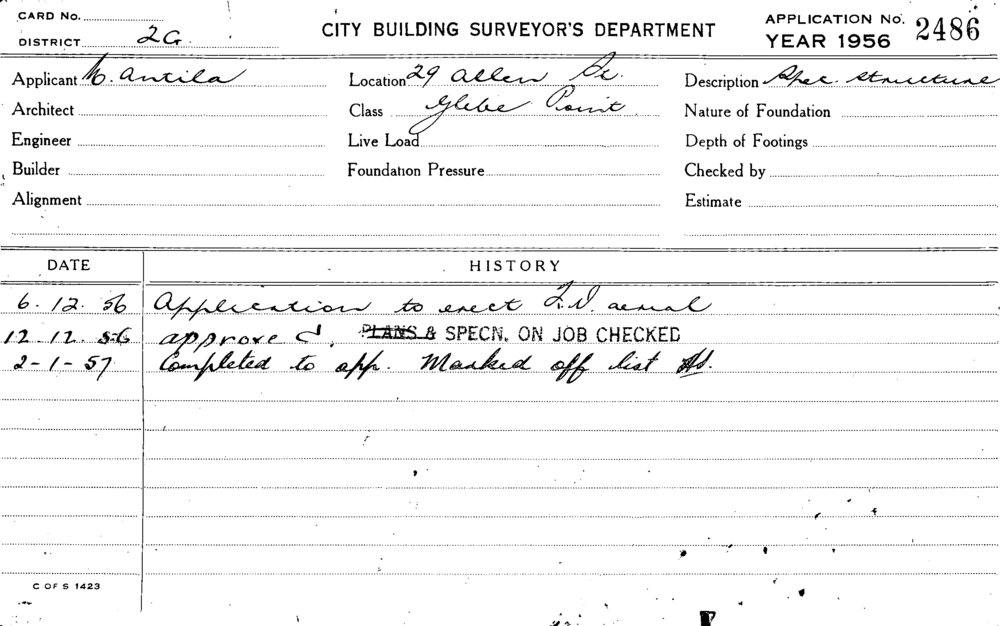 CARD No.
DISTRICT 2G
CITY BUILDING SURVEYOR'S DEPARTMENT
APPLICATION No. 2486
YEAR 1956
Applicant Antila Location 29 Allen St. Description Spec. structure
Architect Class Glebe Point Nature of Foundation
Engineer Live Load Depth of Footings
Builder Foundation Pressure Checked by
Alignment Estimate
DATE HISTORY
6.12.56 Application to erect T.V. aerial
12.12.56 approved. PLANS & SPECN. ON JOB CHECKED
2-1-57 Completed to app. Marked off list
C OF S 1423